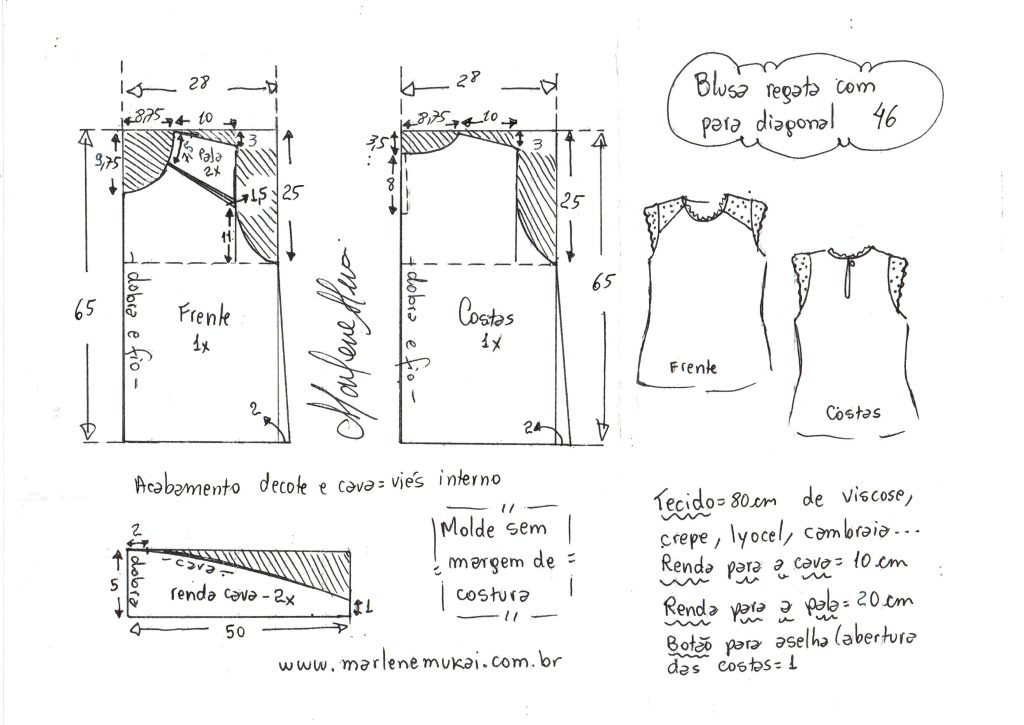 Blusa regata com
para diagonal 46
28
8,75 10
3
9,75
5
Pala
2x
1,5
25
11
65
dobra e fio
Frente
1x
2
28
8,75 10
3,5
3
8
25
65
dobra e fio
Costas
1x
2
Frente
Costas
Acabamento decote e cava = viés interno
2
5
dobra
cava
renda cava - 2x
1
50
Molde sem
margem de
costura
www.marlenemukai.com.br
Tecido = 80 cm de viscose,
crepe, lyocel, cambraia...
Renda para a cava = 10 cm
Renda para a pala = 20 cm
Botão para aselha (abertura
das costas = 1